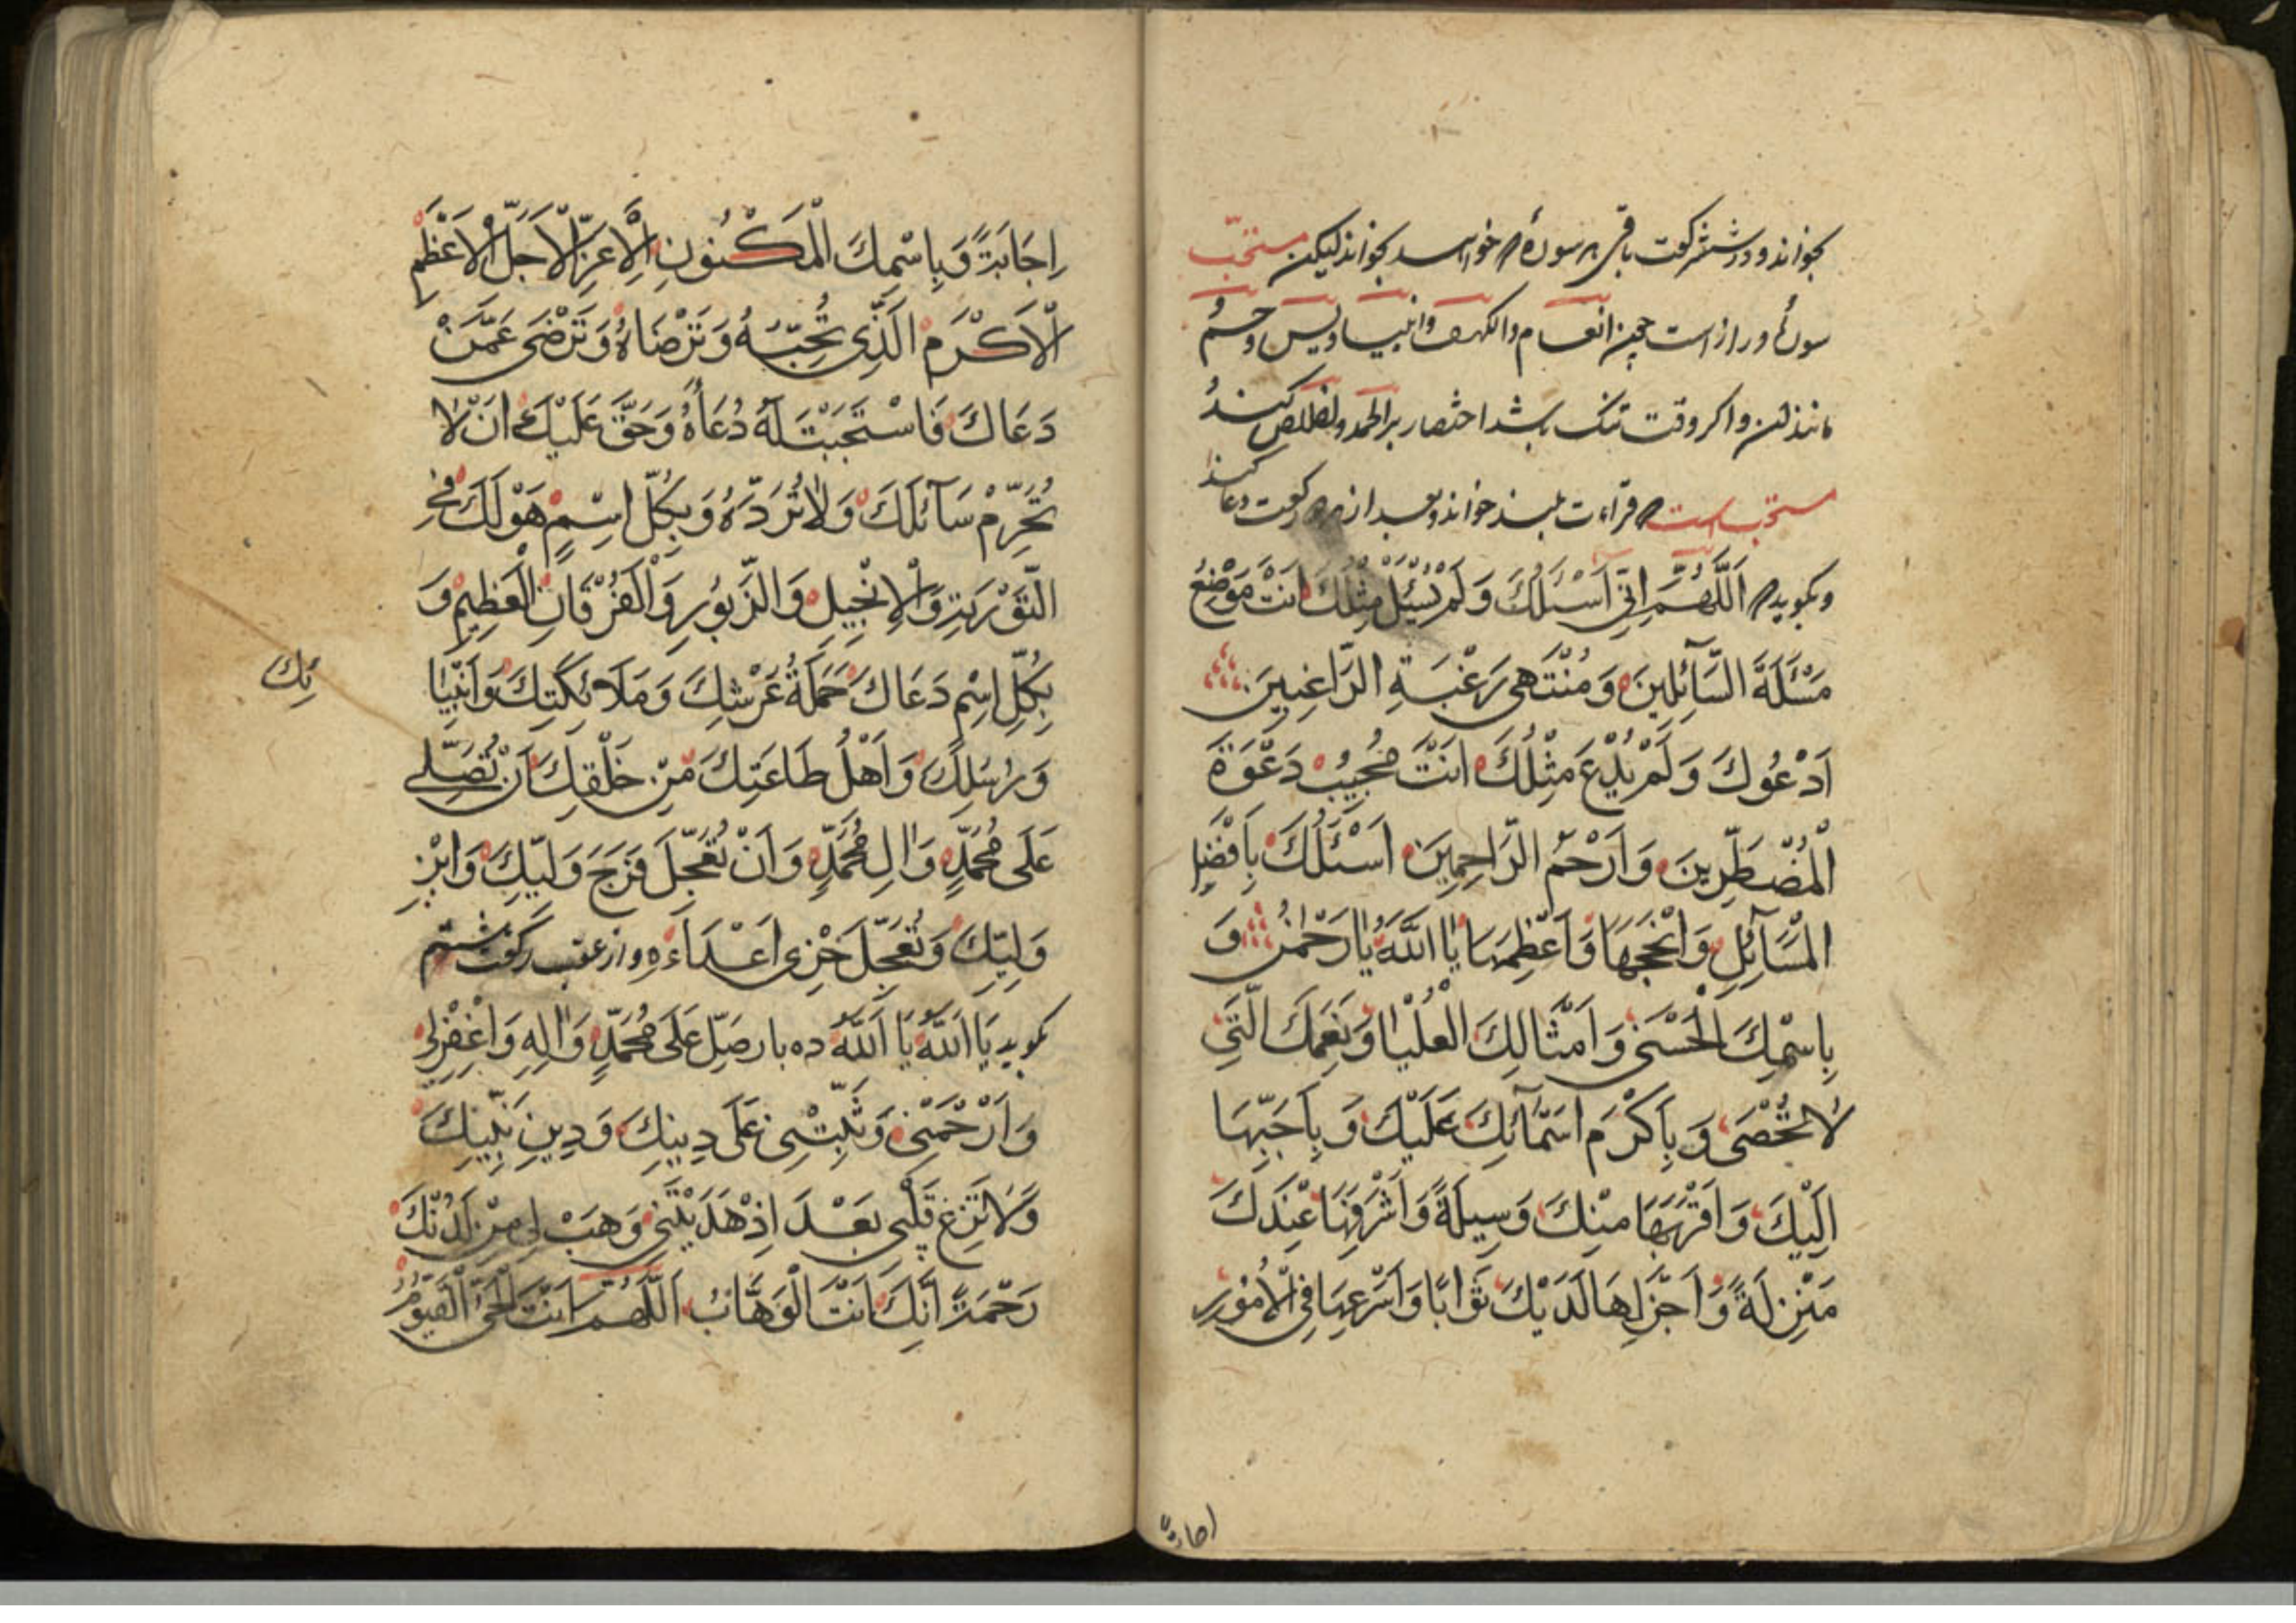 بخواند و در شش رکعت باقی هر سوره که خواسد بخواند لیکن مستحبّ
سورهٔ دراز است چون انعام و الکهف و انبیا و یس و حم
مانند این و اکر وقت تنک باشد اختصار بر الحمد و اخلاص کند
مستحب است که قراءت بلند خواند و بعد از هر دو رکعت دعا کند
و بکوید که اَللَّهُمَّ اِنّی اَسْئَلُكَ وَلَمْ يُسْئَلْ مِثْلُكَ اَنْتَ مَوْضِعُ
مَسْئَلَةَ السَّآئِلِينَ وَ مُنْتَهى رَغْبَةِ الرَّاغِبِينَ
اَدْعُوكَ وَلَمْ يُدْعَ مِثْلُكَ اَنْتَ مُجِيبُ دَعْوَةَ
الْمُضْطَرِّينَ وَ اَرْحَمُ الرَّاحِمِينَ اَسْئَلُكَ بِاَفْضَلِ
الْمَسَآئِلِ وَ اَنْجَحِهَا وَ اَعْظَمِهَا يَا اَللَّهُ يَا رَحْمٰنُ وَ
بِاسْمِكَ الْحُسْنىٰ وَ اَمْثَالِكَ الْعُلْيَا وَ نِعَمِكَ الَّتی
لا تُحْصىٰ وَ بِاَكْرَمِ اَسْمَآئِكَ عَلَيْكَ وَ بِاَحَبِّهَا
اِلَيْكَ وَ اَقْرَبِهَا مِنْكَ وَسِيلَةً وَ اَشْرَفِهَا عِنْدَكَ
مَنْزِلَةً وَ اَجْزَلِهَا لَدَيْكَ ثَوَابًا وَ اَسْرَعِهَا فِی الْاُمُورِ
اِجَابَةً وَ بِاسْمِكَ الْمَكْنُونِ الْاَعَزِّ الْاَجَلِّ الْاَعْظَمِ
الْاَكْرَمِ الَّذِی تُحِبُّهُ وَ تَرْضَاهُ وَ تَرْضىٰ عَمَّنْ
دَعَاكَ فَاسْتَجَبْتَ لَهُ دُعَآءَهُ وَ حَقٌّ عَلَيْكَ اَنْ لا
تُحَرِّمْ سَآئِلَكَ وَ لا تَرُدَّهُ وَ بِكُلِّ اسْمٍ هُوَ لَكَ فِی
التَّوْرٰيةِ وَ الْاِنْجِيلِ وَ الزَّبُورِ وَ الْفُرْقَانِ الْعَظِيمِ وَ
بِكُلِّ اسْمٍ دَعَاكَ حَمَلَةُ عَرْشِكَ وَ مَلَآئِكَتِكَ وَ اَنْبِيَا
ئِكَ
وَ رُسُلِكَ وَ اَهْلُ طَاعَتِكَ مِنْ خَلْقِكَ اَنْ تُصَلِّی
عَلىٰ مُحَمَّدٍ وَ اٰلِ مُحَمَّدٍ وَ اَنْ تُعَجِّلَ فَرَجَ وَلِيِّكَ وَ ابْنِ
وَلِيِّكَ وَ تُعَجِّلَ خِزْیَ اَعْدَآءِهِ و از عقب رکعت هشتم
بکوید يَا اَللَّهُ يَا اَللَّهُ ده بار صَلِّ عَلىٰ مُحَمَّدٍ وَ اٰلِهِ وَ اغْفِرْلی
وَ ارْحَمْنی وَ ثَبِّتْنی عَلىٰ دِينِكَ وَ دِينِ نَبِيِّكَ
وَ لا تُزِغْ قَلْبی بَعْدَ اِذْ هَدَيْتَنی وَ هَبْ لی مِنْ لَدُنْكَ
رَحْمَةً اِنَّكَ اَنْتَ الْوَهَّابُ اَللَّهُمَّ اَنْتَ الْحَیُّ الْقَيُّومُ